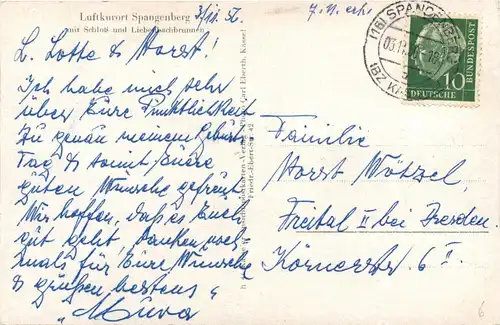 Luftkurort Spangenberg
mit Schloß und Liebenbachbrunnen
3/11. 56.
(16) SPANGENBERG
DEUTSCHE BUNDESPOST
10
L. Lotte & Horst!
Ich habe mich sehr
über Eure Pünktlichkeit
zu genau meinem Geburts
Tag & somit Eure
guten Wünsche gefreut
Wir hoffen, daß es Euch
gut geht, danken noch
mals für Eure Wünsche
& grüßen bestens
Carl Eberth, Kassel
Friedr.-Ebert-Str.
Familie
Horst Wötzel
Freital II bei Dresden
Körnerstr. 6 I.
6